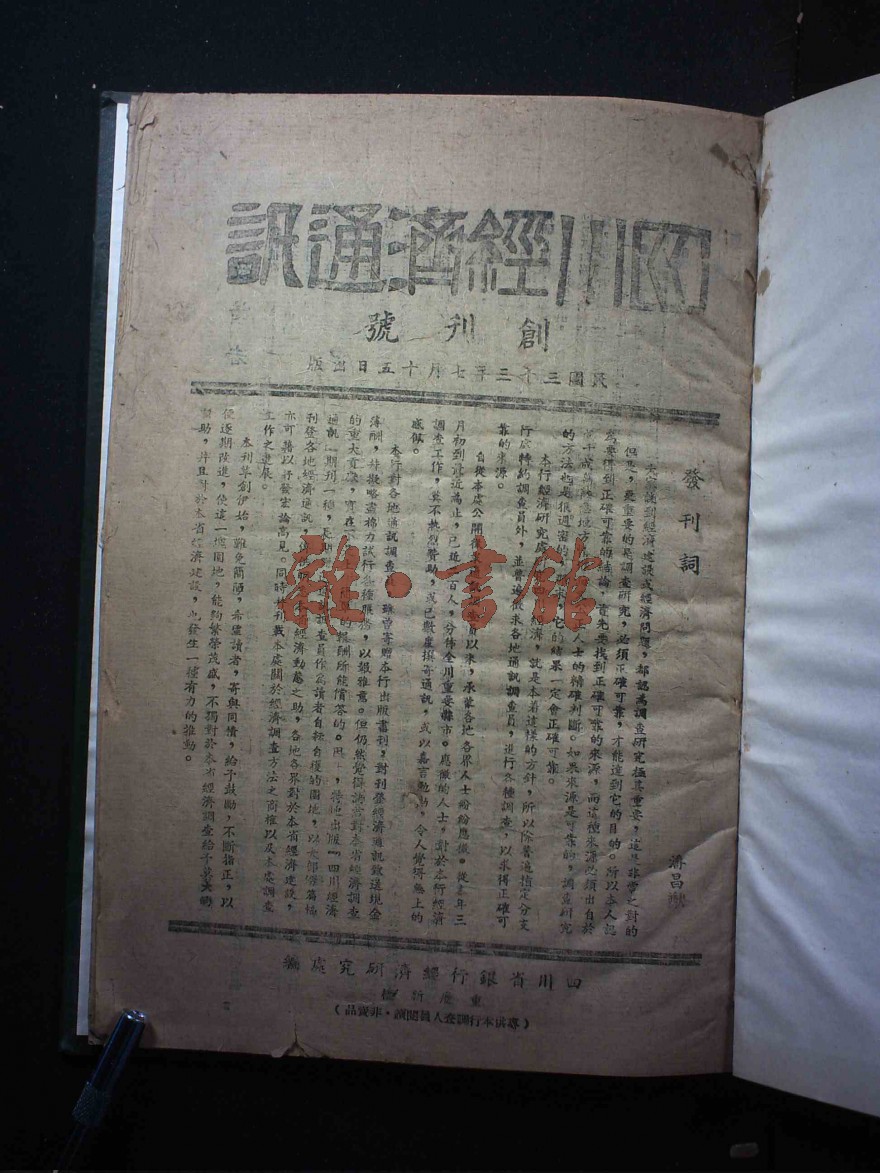 四川經濟通訊
創刊號
民國三十三年七月十五日出版
發刊詞
濟昌
談到經濟建設或經濟問題,都認為調查研究極其重要,這是非常之對的
但是,最重要的是調查研究,必須正確可靠,才能達到它的目的。所以本人認
為要得到正確可靠的結論,首先要找到正確可靠的來源,而這種來源必須出自於
人士的精確判斷。如果來源是可靠的,調查研究
的方法也是很週密的,它的結果一定會正確可靠。
本行經濟研究處經濟,就是本着這樣的方針,所以除普通指定分支
行處特約調查員外,並普遍徵求各地通訊調查員,進行各種調查,以求得正確可
靠的來源。
自從本處公開徵員以來,承蒙各地各界人士紛紛應徵。從去年三
月初到最近為止,已近百人,分佈全川重要縣市。應徵的人士,對於本行經濟
調查工作,莫不熱烈贊助,或已數度撰寄通訊,或以嘉言勉勵,令人覺得無上的
感佩。
本行對各地通訊調查員,雖曾寄贈本行出版書刊,對刊登經濟通訊致送現金
薄酬,并擬略盡棉力試行各種服務,以報雅意。但仍然覺得諸君對本省經濟調查
的重大貢獻,實在報酬所能償答的。特地出版『四川經濟
通訊』期刊一種,長調查員作為讀者自耕自獲的園地,以大部份篇幅
刊登各地經濟通訊,經濟動態之助,各地各界對於本省經濟建設,
亦可藉以抒發宏論高見。同時并刊載本處關於經濟調查方法之商榷以及本處調查
工作之進展。
本刊草創伊始,難免簡陋,希望讀者,寄與同情,給予鼓勵,不斷指正,以
便逐期改進,使這一塊園地,能夠繁榮茂盛,不獨對於本省經濟調查給予莫大的
幫助,并且對於本省經濟建設,也發生一種有力的推動。
四川省銀行經濟研究處編
重慶
(專供本行調查人員閱讀・非賣品)
雜・書館